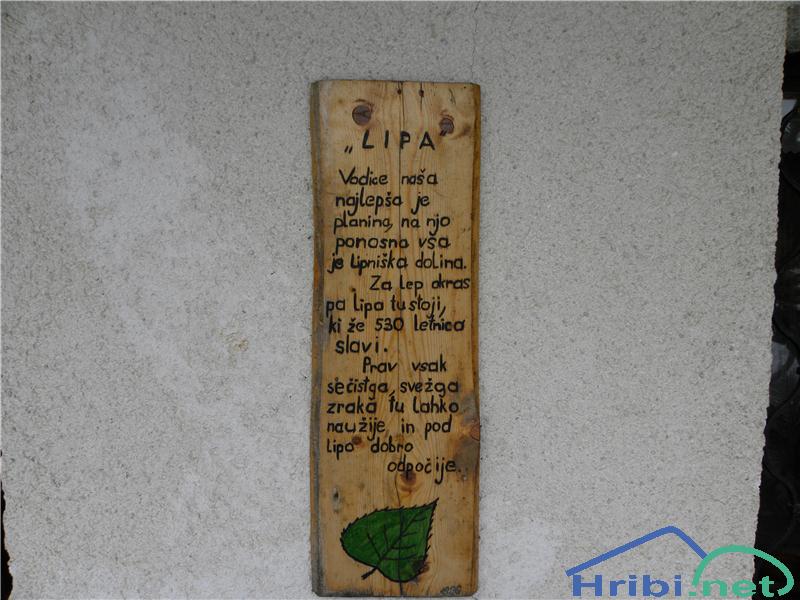 „LIPA”
Vodice naša
najlepša je
planina, na njo
ponosna vsa
je lipniška dolina.
Za lep okras
pa lipa tu stoji,
ki že 530 letnico
slavi.
Prav vsak
se čistga, svežga
zraka tu lahko
naužije, in pod
lipo dobro
odpočije.
Hribi.net